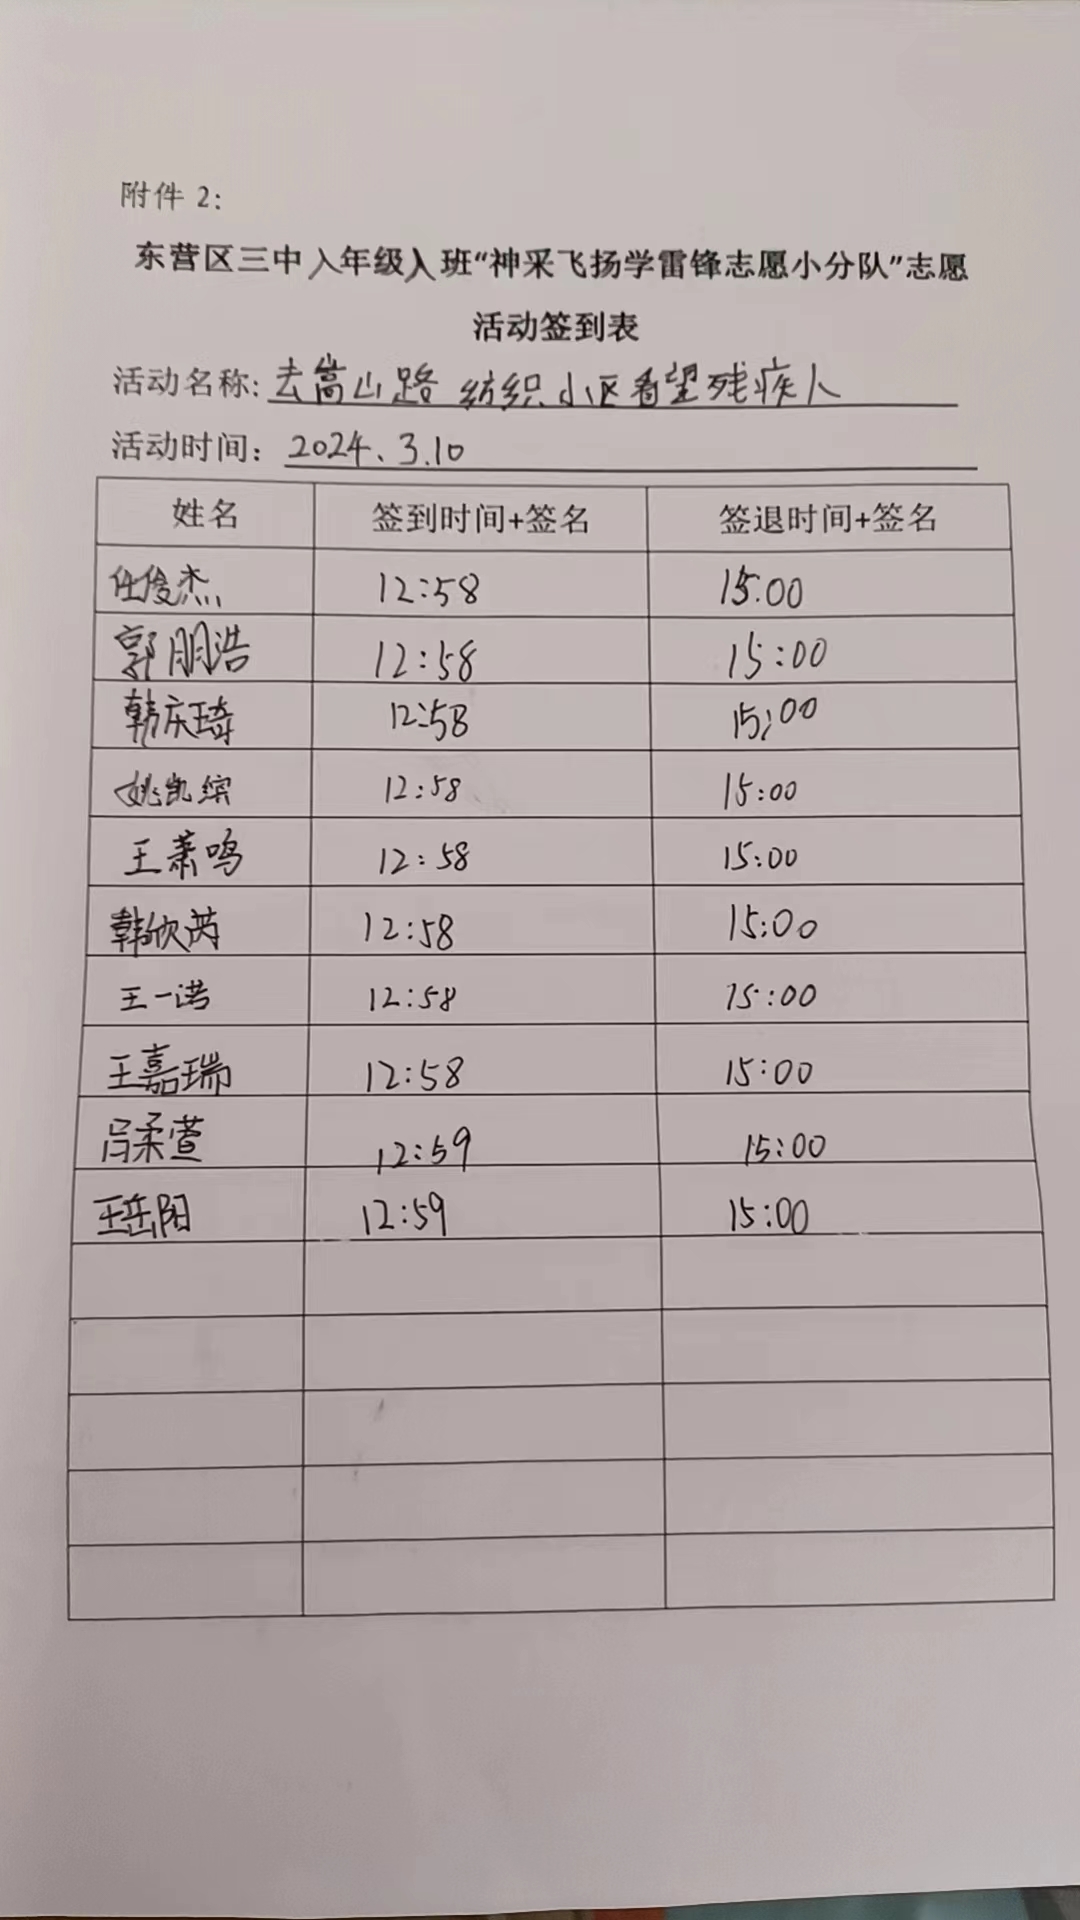 附件 2:
东营区三中八年级八班“神采飞扬学雷锋志愿小分队”志愿
活动签到表
活动名称:去嵩山路 纺织小区看望残疾人
活动时间: 2024、3.10
姓名 签到时间+签名 签退时间+签名
任俊杰 12:58 15:00
郭朋浩 12:58 15:00
韩庆琦 12:58 15:00
姚凯缤 12:58 15:00
王萧鸣 12:58 15:00
韩欣芮 12:58 15:00
王一诺 12:58 15:00
王嘉瑞 12:58 15:00
冯柔萱 12:59 15:00
王岳阳 12:59 15:00